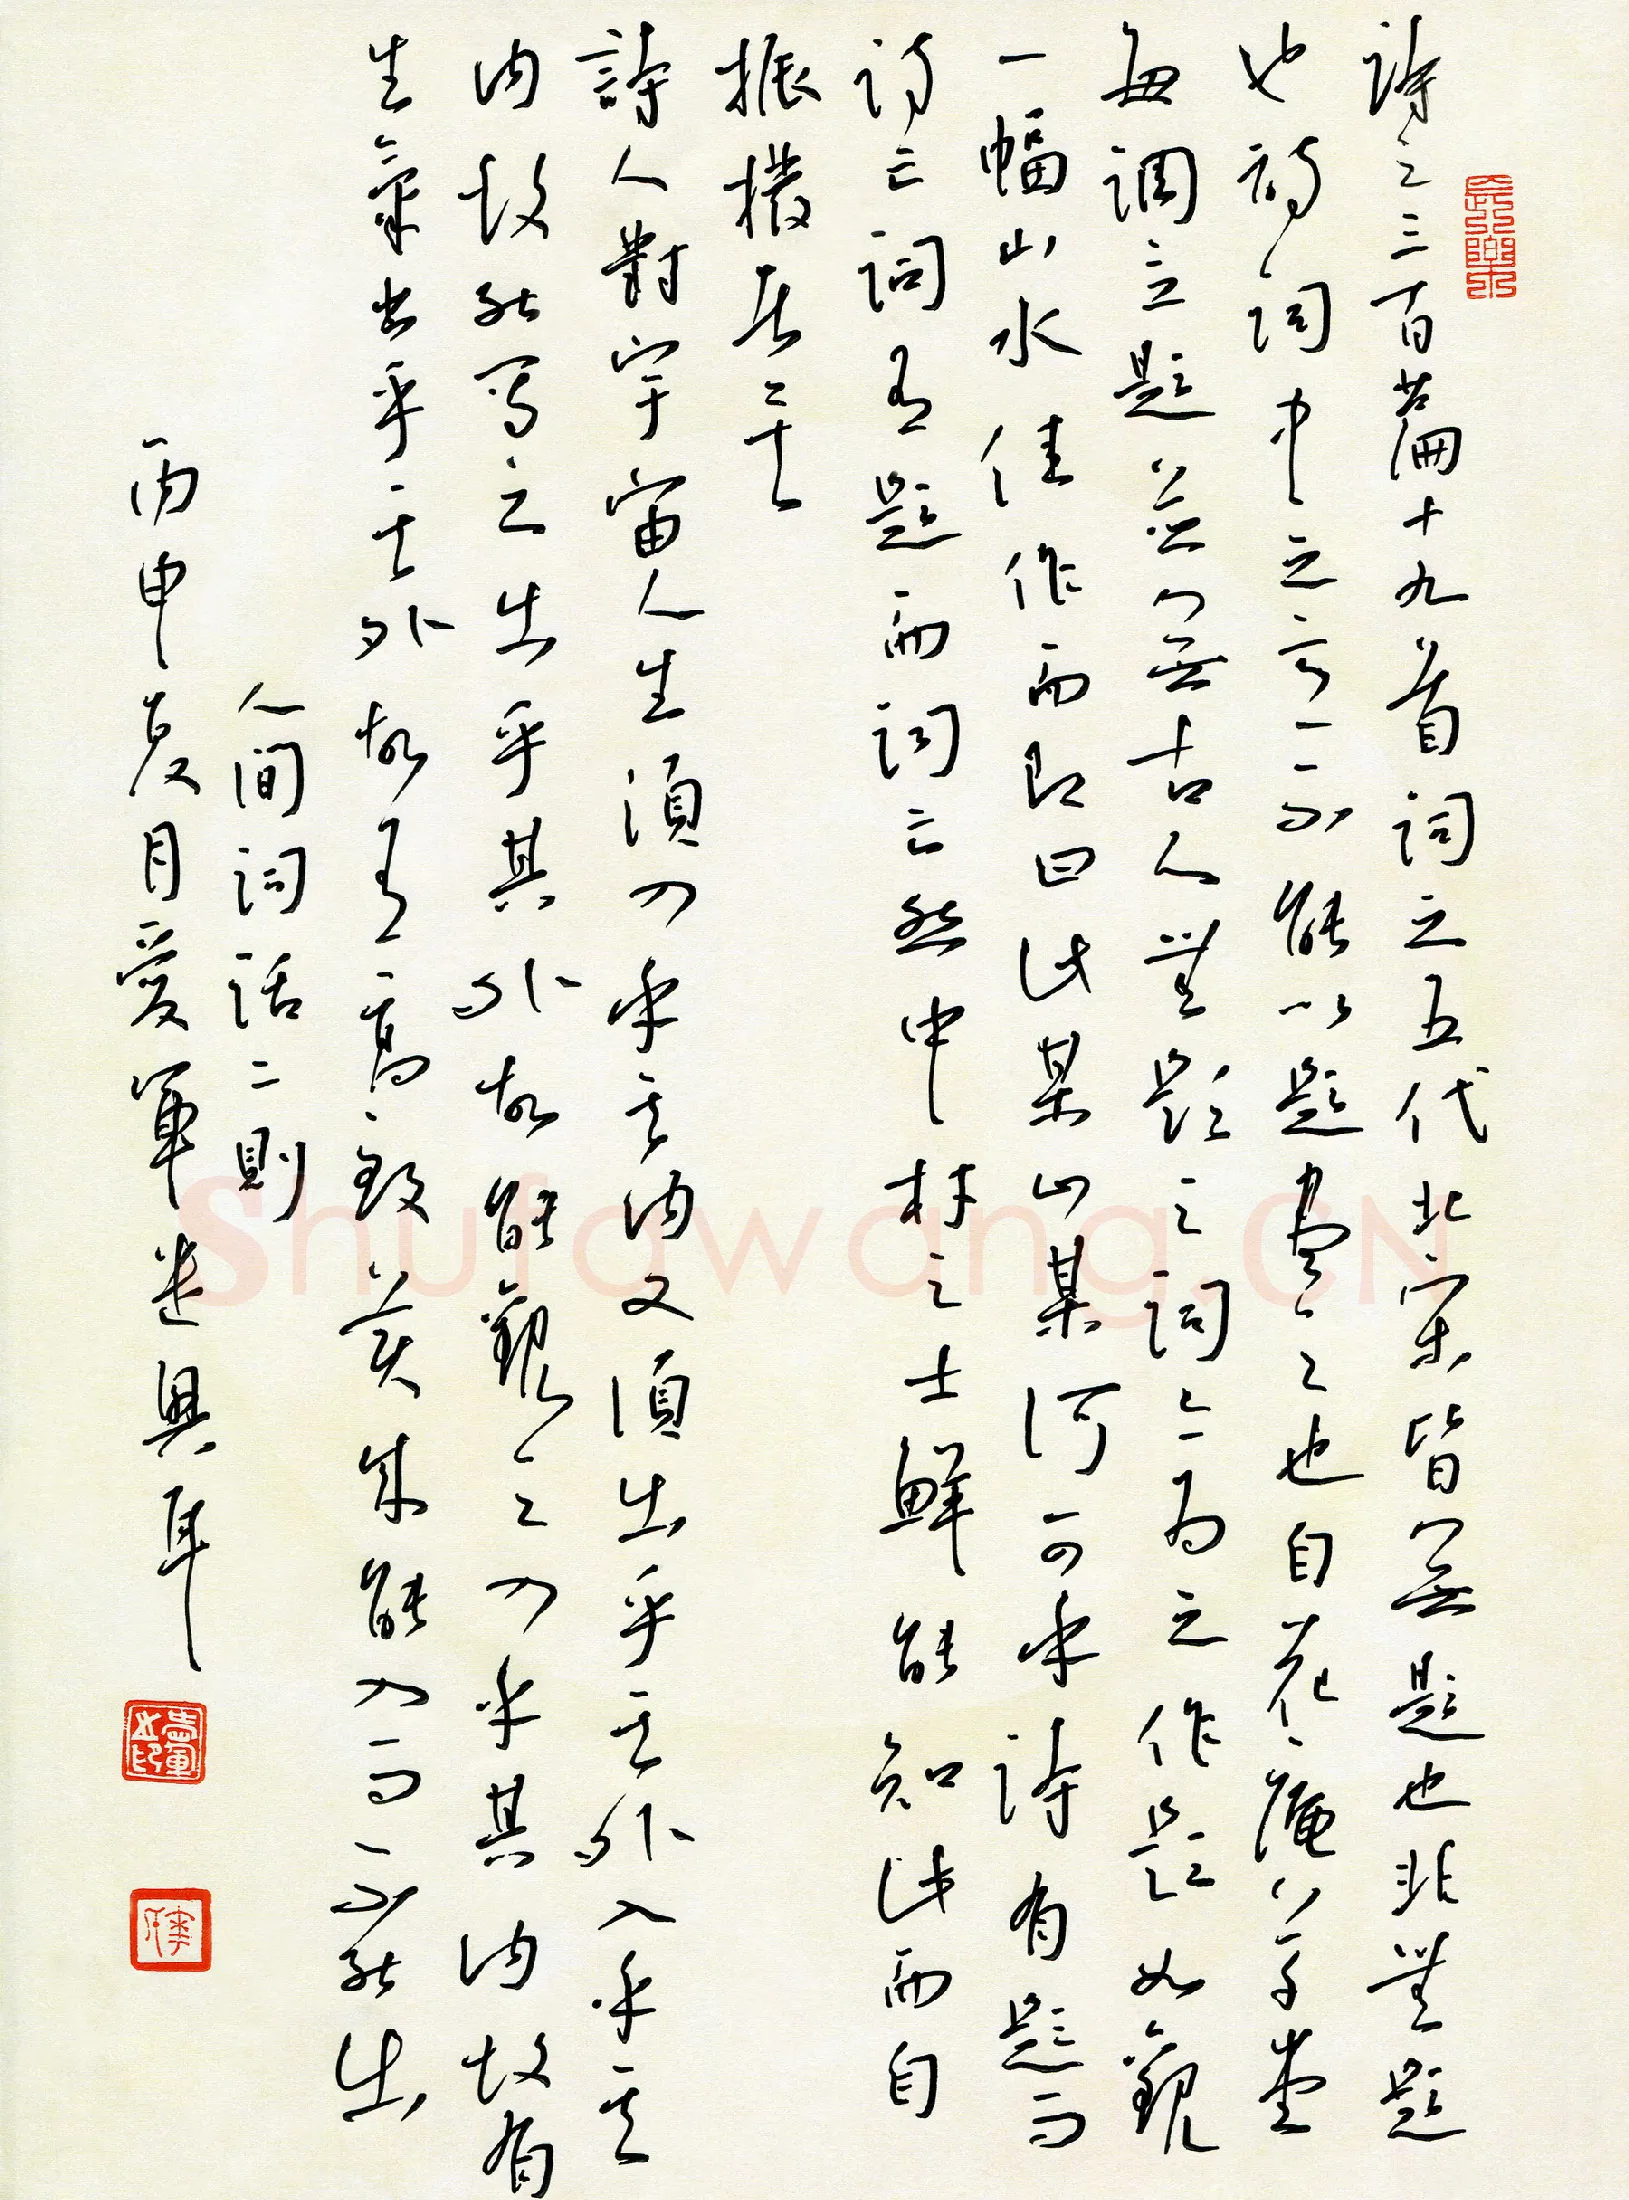 詩之三百篇十九首詞之五代北宋皆無題也非無題
也詩詞中之意不能以題盡之也自花庵草堂
每調立題並無古人無題之詞亦為之作題如觀
一幅山水佳作而即曰此某山某河可乎詩有題而
詩亡詞有題而詞亡然中材之士鮮能知此而自
振撥者矣
詩人對宇宙人生須入乎其內又須出乎其外入乎其
內故能寫之出乎其外故能觀之入乎其內故有
生氣出乎其外故有高致美成能入而不能出
人間詞話二則
丙申夏月愛軍遣興耳
Shufawang.CN